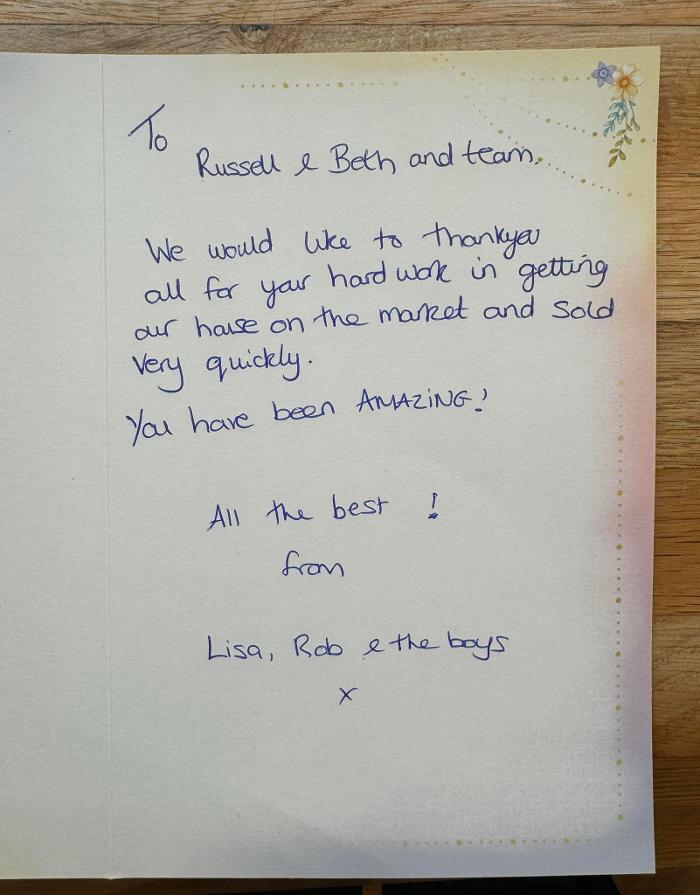 To
Russell & Beth and team,
We would like to thankyou
all for your hard work in getting
our house on the market and sold
very quickly.
You have been AMAZiNG!
All the best !
from
Lisa, Rob & the boys
x